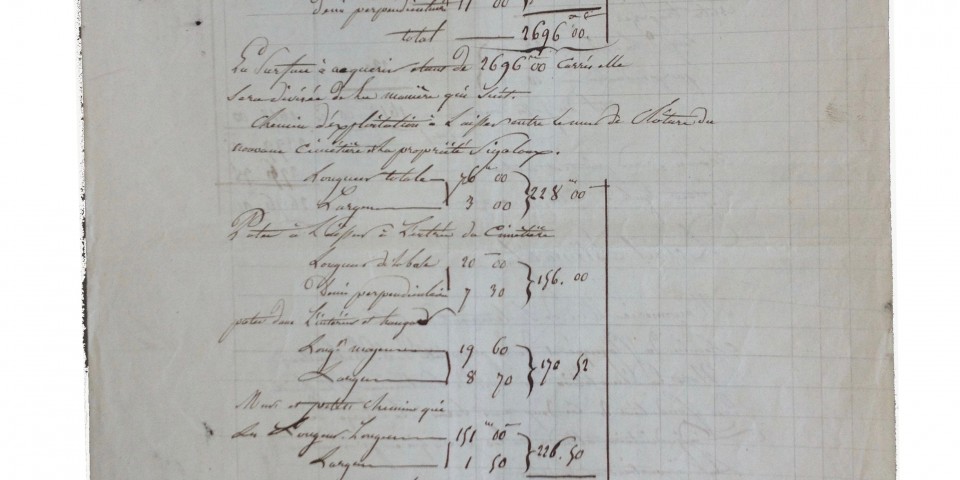 demi perpendiculaire 11 00
total 2696 m 00.
La Surface à acquerir etant de 2696 m 00 Carrés elle
sera divisée de la manière qui suit.
Chemin d'exploitation à laisser entre le mur de Clôture du
nouveau Cimetière et la propriété
Longueur totale 76 00 228 m 00
Largeur 3 00
à Laisser à L'entrée du Cimetière
Longueur de la base 20 00 156. 00
Demi perpendiculaire 7 80
dans L'intérieur et
Longr moyenne 19 60 170 52
Largeur 8 70
Murs et petits chemins qui
Les Longent. Longueur 151 m 00 226. 50
Largeur 1 50